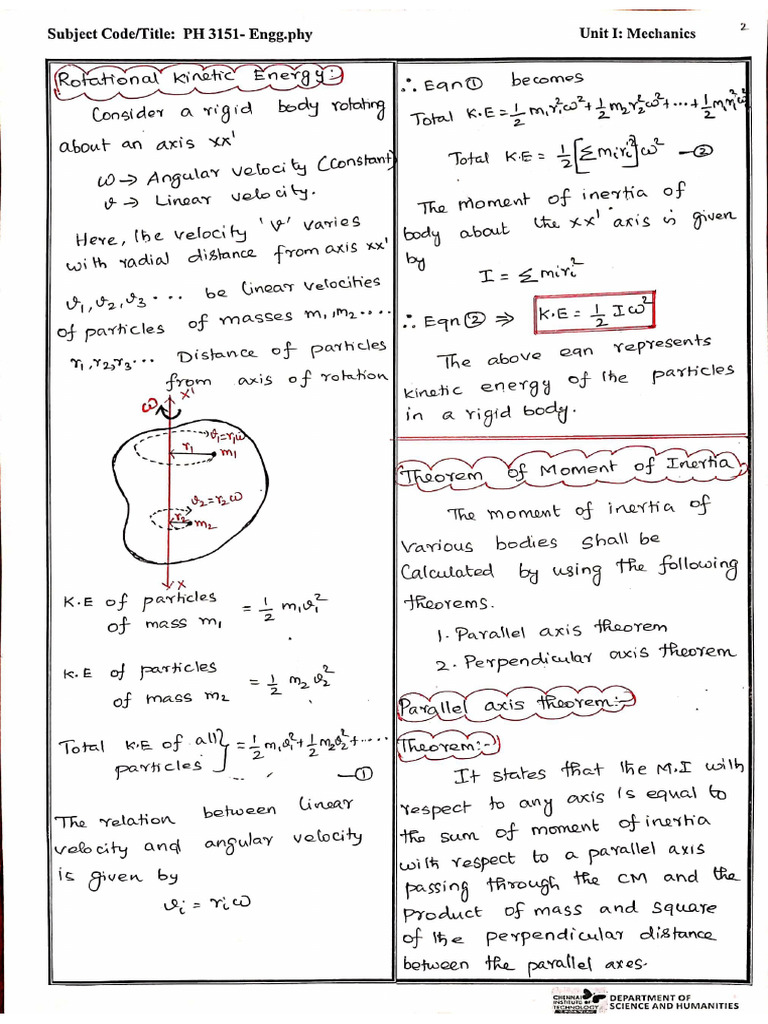 Subject Code/Title: PH 3151- Engg.phy
Unit I: Mechanics
2
Rotational Kinetic Energy:-
Consider a rigid body rotating
about an axis xx'
ω → Angular velocity (Constant)
ϑ → Linear velocity.
Here, the velocity 'ϑ' varies
with radial distance from axis xx'
ϑ1, ϑ2, ϑ3 ... be linear velocities
of particles of masses m1, m2 ....
r1, r2, r3 ... Distance of particles
from axis of rotation
x'
ω
ϑ1=r1ω
r1
m1
ϑ2=r2ω
r2
m2
x
K.E of particles
of mass m1 = 1/2 m1ϑ1²
K.E of particles
of mass m2 = 1/2 m2ϑ2²
Total K.E of all
particles } = 1/2 m1ϑ1² + 1/2 m2ϑ2² + .....
—①
The relation between linear
velocity and angular velocity
is given by
ϑi = riω
∴ Eqn ① becomes
Total K.E = 1/2 m1r1²ω² + 1/2 m2r2²ω² + ... + 1/2 miri²ω²
Total K.E = 1/2 [Σ miri²] ω² —②
The moment of inertia of
body about the xx' axis is given
by
I = Σ miri²
∴ Eqn ② ⇒ K.E = 1/2 Iω²
The above eqn represents
kinetic energy of the particles
in a rigid body.
Theorem of Moment of Inertia
The moment of inertia of
various bodies shall be
Calculated by using the following
theorems.
1. Parallel axis theorem
2. Perpendicular axis theorem
Parallel axis theorem:-
Theorem:-
It states that the M.I with
respect to any axis is equal to
the sum of moment of inertia
with respect to a parallel axis
passing through the CM and the
product of mass and square
of the perpendicular distance
between the parallel axes.
CHENNAI
INSTITUTE OF
TECHNOLOGY
DEPARTMENT OF
SCIENCE AND HUMANITIES